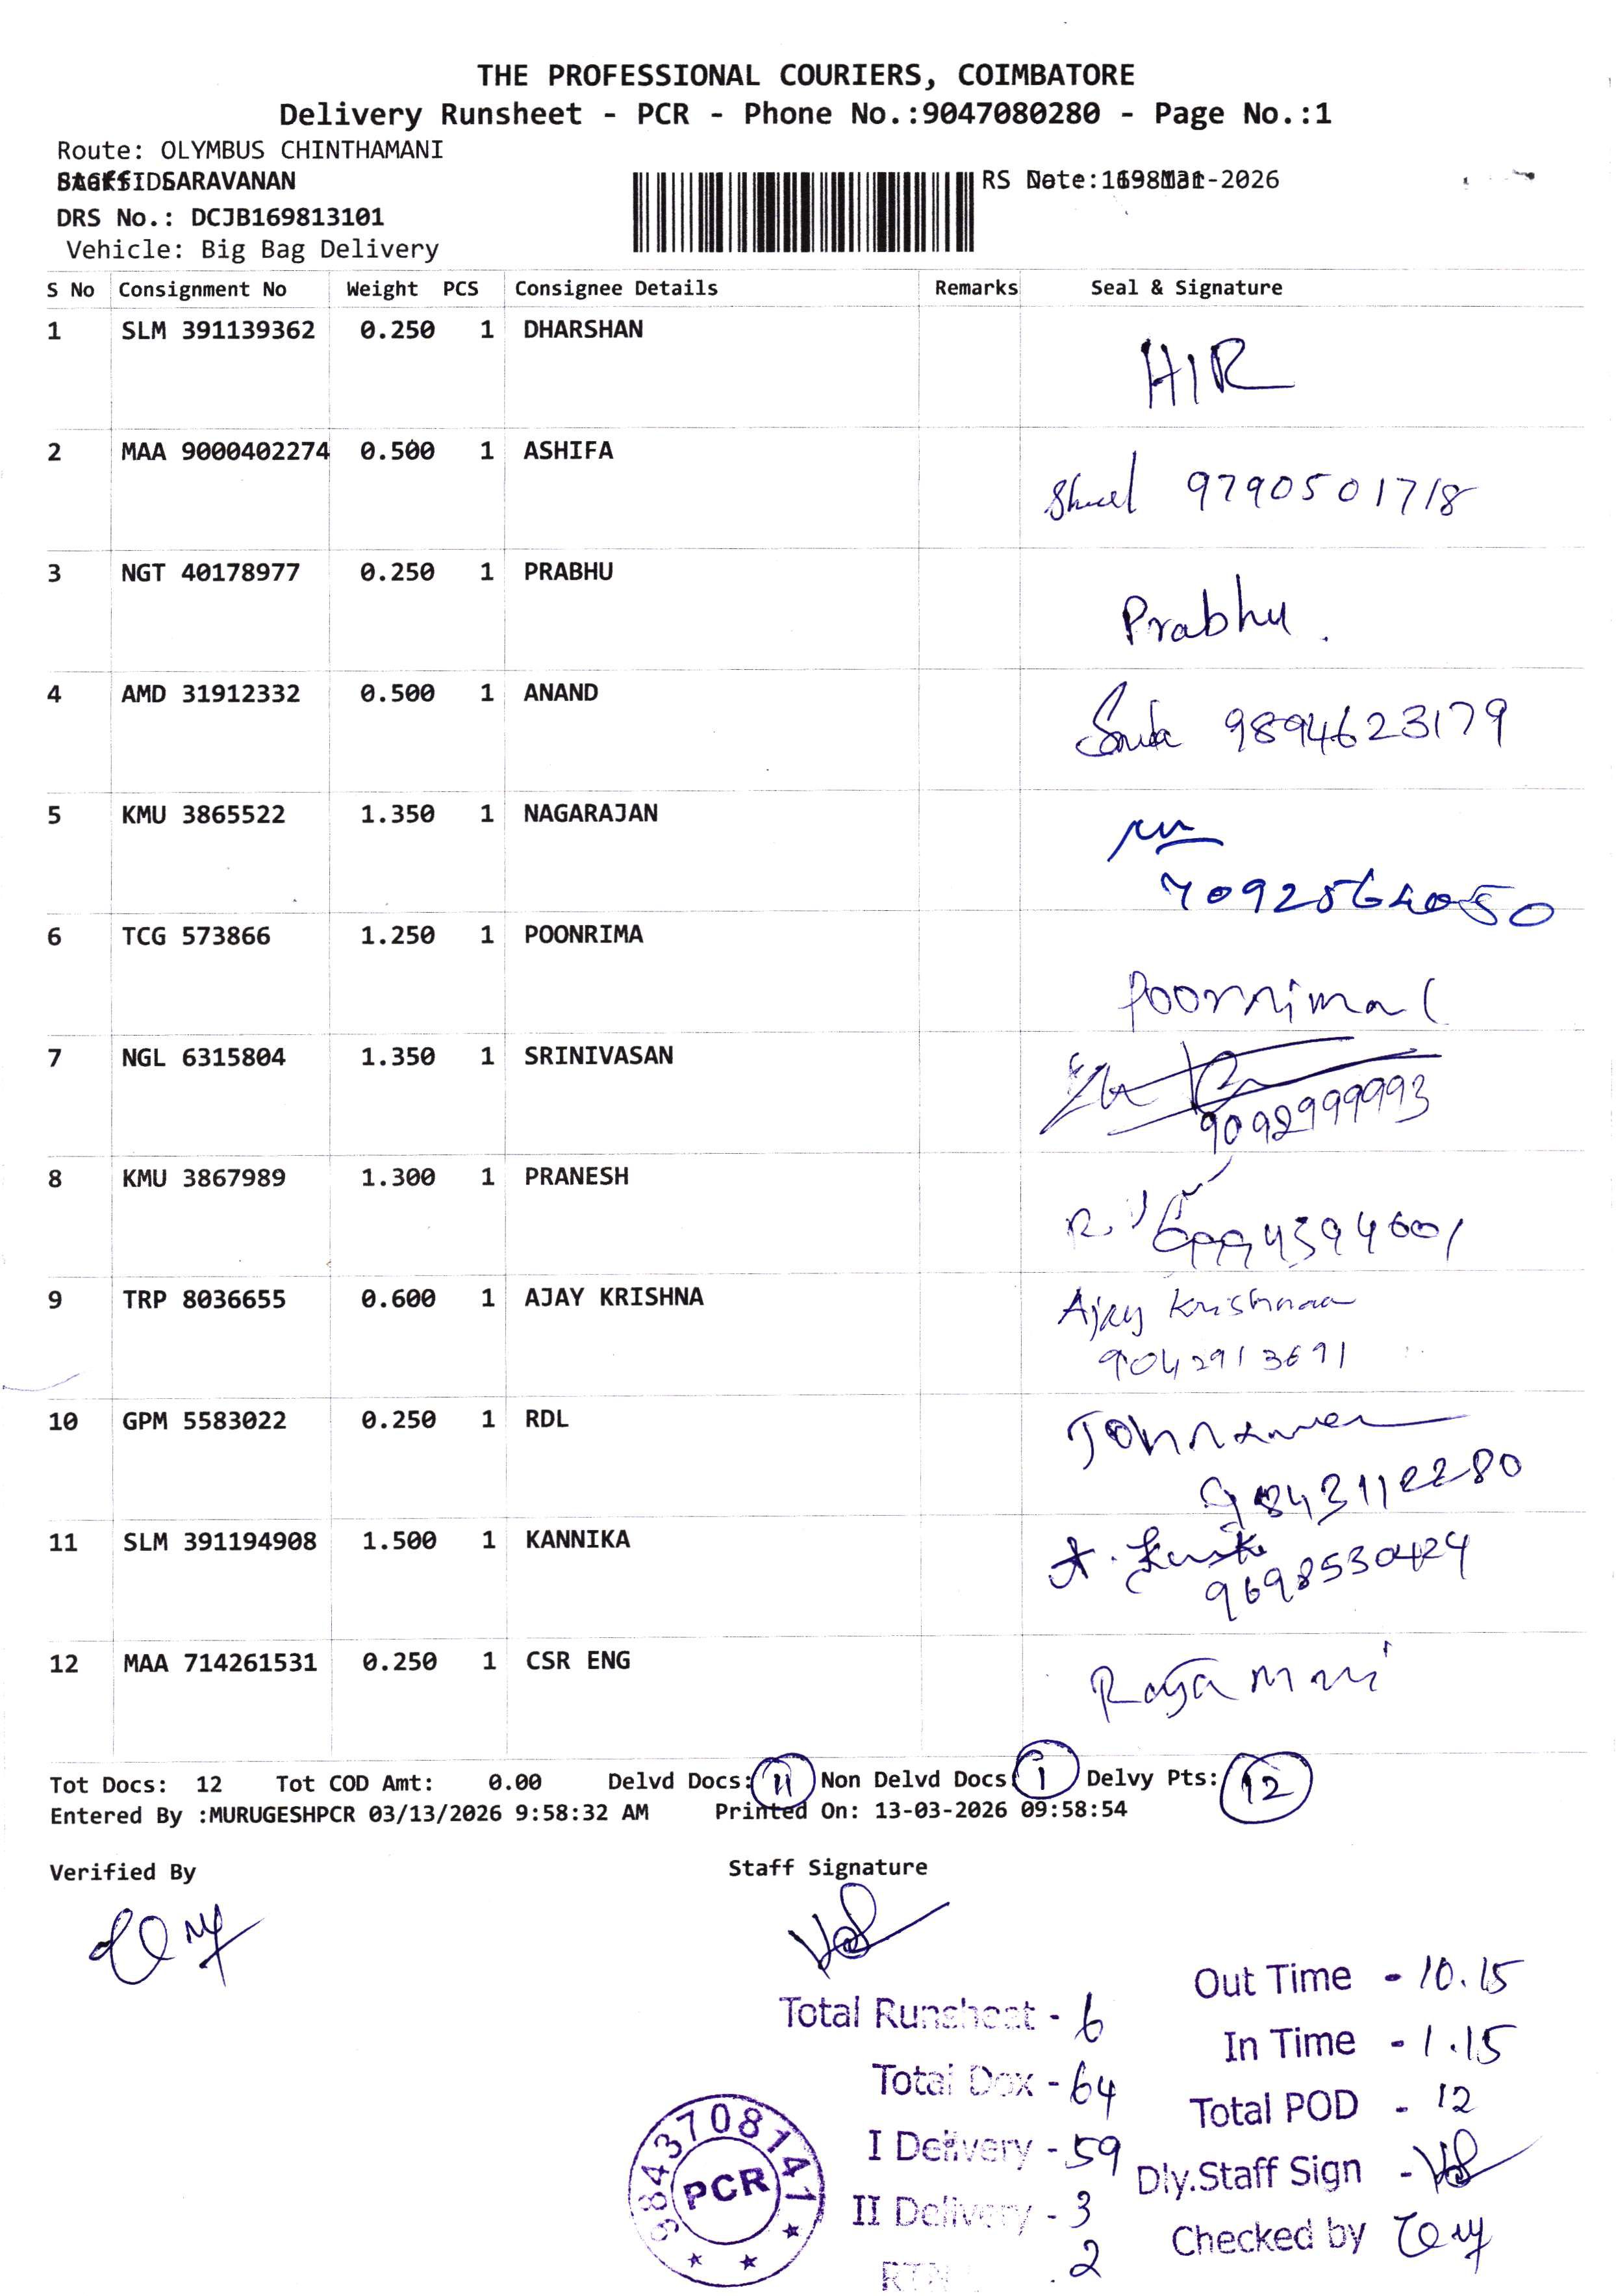 THE PROFESSIONAL COURIERS, COIMBATORE
Delivery Runsheet - PCR - Phone No.:9047080280 - Page No.:1
Route: OLYMBUS CHINTHAMANI
SARAVANAN
RS Date: -2026
DRS No.: DCJB169813101
Vehicle: Big Bag Delivery
S No Consignment No Weight PCS Consignee Details Remarks Seal & Signature
1 SLM 391139362 0.250 1 DHARSHAN
HIR
2 MAA 9000402274 0.500 1 ASHIFA
9790501718
3 NGT 40178977 0.250 1 PRABHU
Prabhu.
4 AMD 31912332 0.500 1 ANAND
9894623179
5 KMU 3865522 1.350 1 NAGARAJAN
6 TCG 573866 1.250 1 POONRIMA
Poornima
7 NGL 6315804 1.350 1 SRINIVASAN
9092999993
8 KMU 3867989 1.300 1 PRANESH
9 TRP 8036655 0.600 1 AJAY KRISHNA
Ajay Krishnaa
9042913691
10 GPM 5583022 0.250 1 RDL
11 SLM 391194908 1.500 1 KANNIKA
9698530424
12 MAA 714261531 0.250 1 CSR ENG
Tot Docs: 12 Tot COD Amt: 0.00 Delvd Docs: 11 Non Delvd Docs: 1 Delvy Pts: 12
Entered By :MURUGESHPCR 03/13/2026 9:58:32 AM Printed On: 13-03-2026 09:58:54
Verified By Staff Signature
Out Time - 10.15
Total Runsheet - 6
In Time - 1.15
Total Dox - 64
Total POD - 12
I Delivery - 59
Dly.Staff Sign -
II Delivery - 3
Checked by
RTN 2
9843708141
PCR